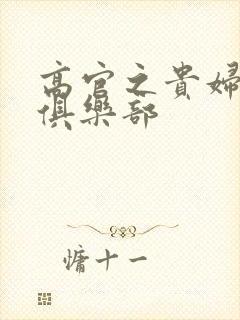 高官之貴婦
俱樂部
慵十一